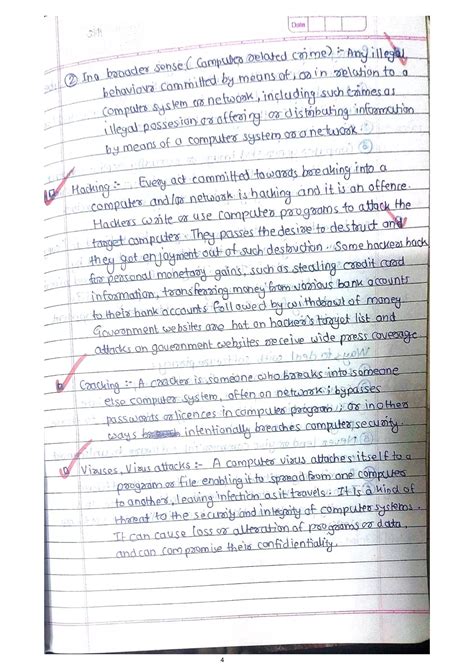 Date
② In a broader sense (Computer related crime) :- Any illegal
behaviour committed by means of, or in relation to a
computer system or network, including such crimes as
illegal possesian or offering or distributing information
by means of a computer system or a network.
Hacking :- Every act committed towards breaking into a
computer and/or network is hacking and it is an offence.
Hackers write or use computer programs to attack the
target computer. They passes the desire to destruct and
they got enjoyment out of such destruction. Some hackers hack
for personal monetary gains, such as stealing credit card
information, transferring money from various bank accounts
to their bank accounts followed by withdrawl of money.
Government websites are hot on hacker's target list and
attacks on government websites receive wide press coverage.
Cracking :- A cracker is someone who breaks into someone
else computer system, often on network ; bypasses
passwords or licences in computer program ; or in other
ways intentionally breaches computer security.
Viruses, Virus attacks :- A computer virus attaches itself to a
program or file enabling it to spread from one computer
to another, leaving infection as it travels. It is a kind of
threat to the security and integrity of computer systems.
It can cause loss or alteration of programs or data,
and can compromise their confidientiality.
4